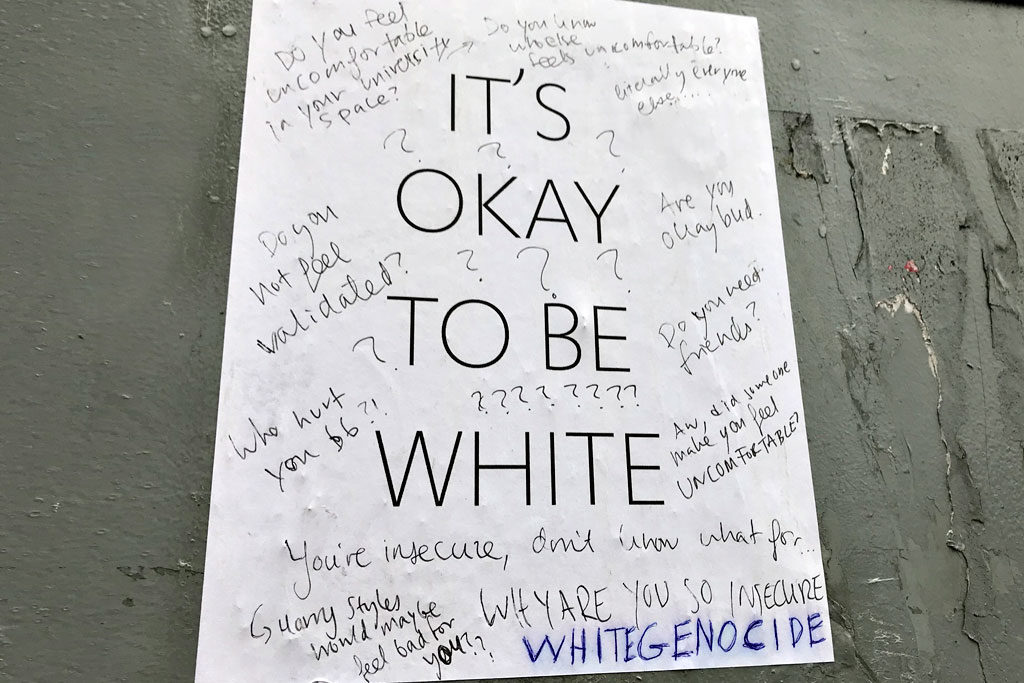 Do you feel
uncomfortable
in your university
space?
Do you know
who else
feels uncomfortable?
literally everyone
else.....
IT'S
? ? ?
OKAY
Are you
okay bud.
Do you
not feel
validated?
? ? ?
TO BE
?
Do you need
friends?
????????
Who hurt
you bb?!
WHITE
Aw, did someone
make you feel
UNCOMFORTABLE?
You're insecure, don't know what for...
Harry Styles
would maybe
feel bad for
you??
WHY ARE YOU SO INSECURE
WHITEGENOCIDE